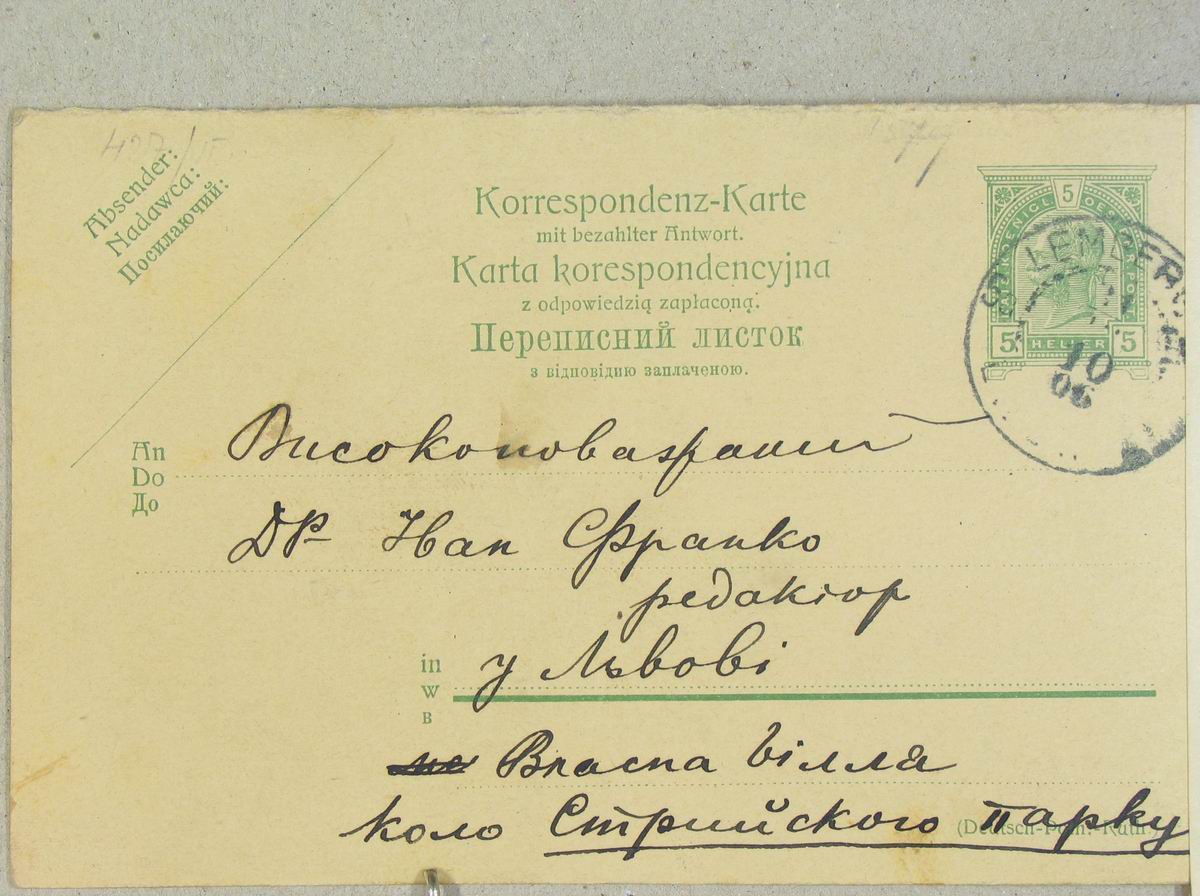 Absender:
Nadawca:
Посилаючий:
Korrespondenz-Karte
mit bezahlter Antwort.
Karta korespondencyjna
z odpowiedzią zapłaconą.
Переписний листок
з відповідию заплаченою.
5
5 HELLER 5
LEMBERG
10
06
An
Do
До
Високоповажаний
ДР Іван Франко
редактор
in
w
в
у Львові
Власна вілла
коло Стрийского парку
(Deutsch-Poln.-Ruth.)